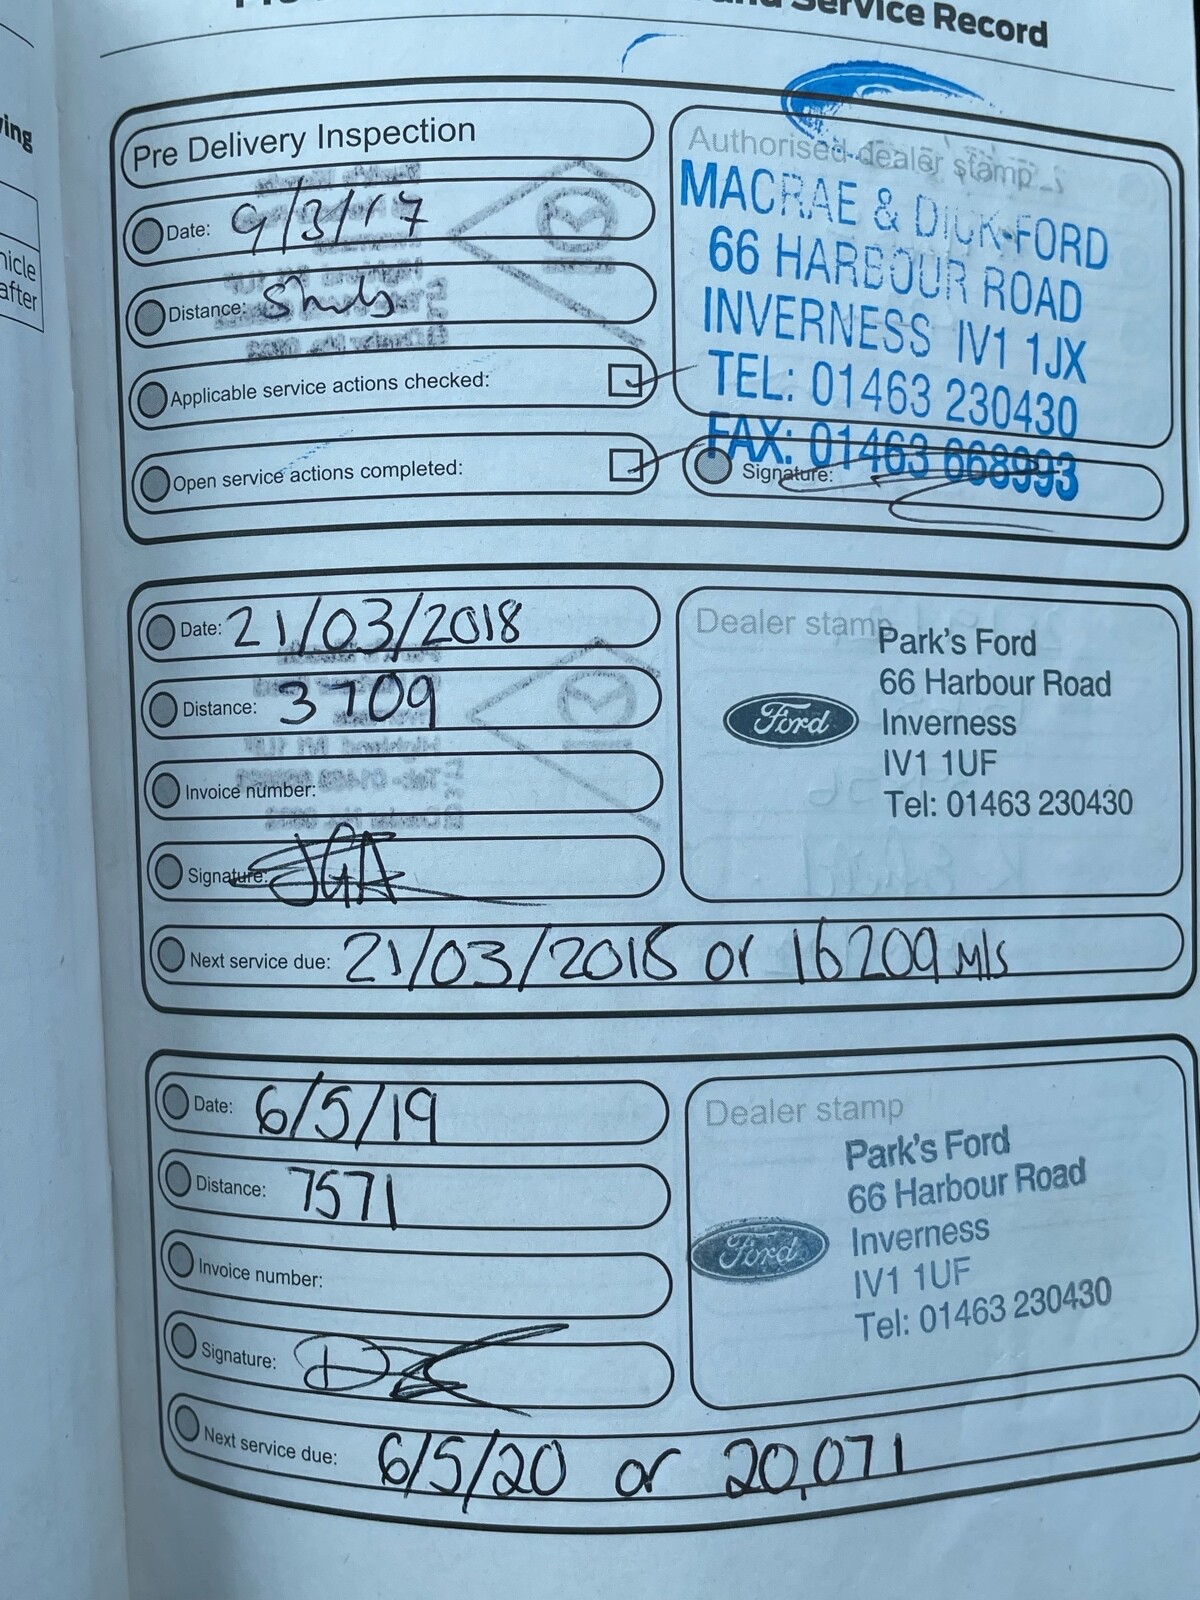 Service Record
Pre Delivery Inspection
Date: 9/3/17
Distance:
Applicable service actions checked:
Open service actions completed:
Authorised dealer stamp
MACRAE & DICK FORD
66 HARBOUR ROAD
INVERNESS IV1 1JX
TEL: 01463 230430
FAX: 01463 668993
Signature:
Date: 21/03/2018
Distance: 3709
Invoice number:
Signature:
Next service due: 21/03/2018 or 16209 Mls
Dealer stamp
Park's Ford
66 Harbour Road
Ford
Inverness
IV1 1UF
Tel: 01463 230430
Date: 6/5/19
Distance: 7571
Invoice number:
Signature:
Next service due: 6/5/20 or 20,071
Dealer stamp
Park's Ford
66 Harbour Road
Ford
Inverness
IV1 1UF
Tel: 01463 230430